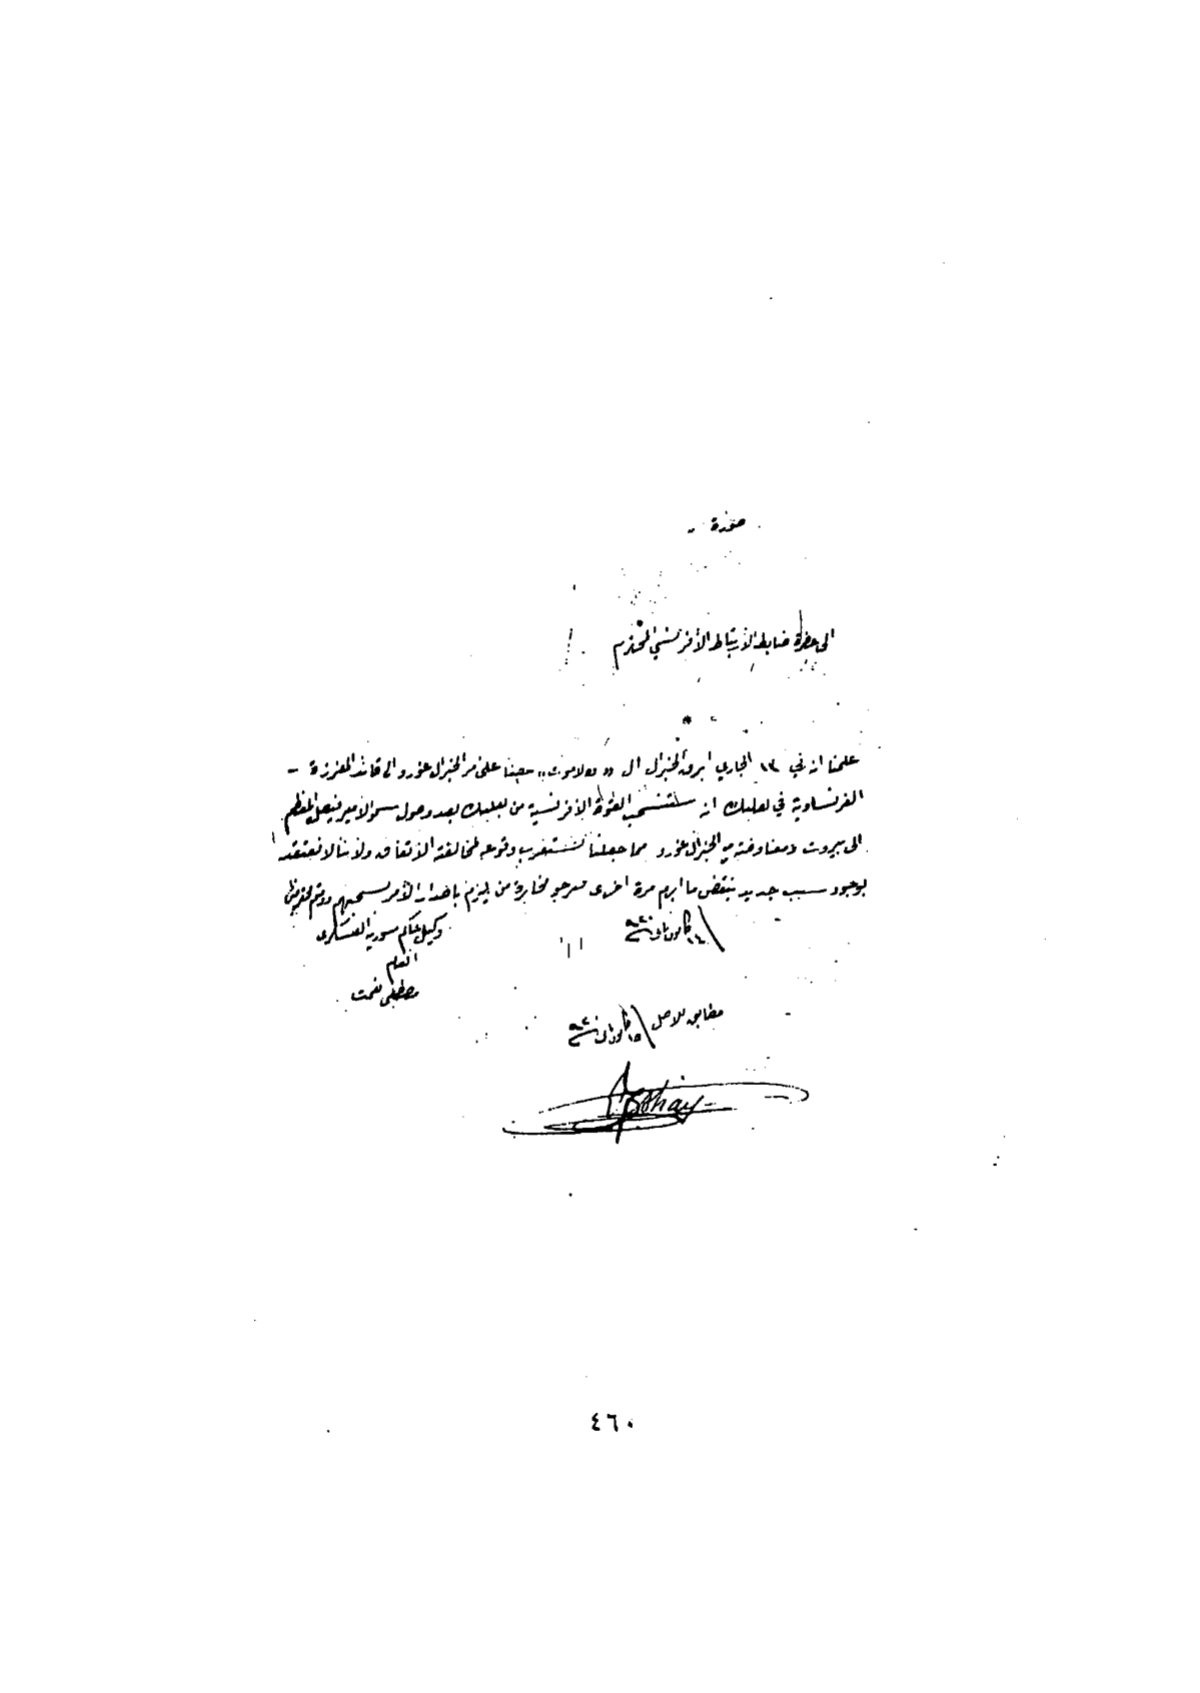 صورة
الى حضرة ضابط الارتباط الافرنسي المحترم
علمنا انه في ١٣ الجاري ابرق الجنرال ال " ده لاموت " مبينا على امر الجنرال غورو الى قائد المفرزة -
الفرنساوية في بعلبك انه ستنسحب القوة الافرنسية من بعلبك بعد وصول سمو الامير فيصل المعظم
الى بيروت ومفاوضته مع الجنرال غورو مما جعلنا نستغرب وقوعه لمخالفته الاتفاق ولاننا لا نعتقد
بوجود سبب جديد ينقض ما ابرم مرة اخرى فنرجو مخابرة من يلزم باصدار الامر بسحبهم
١٤ كانون ثاني ٩٢٠ وكيل حاكم سورية العسكري
العام
مصطفى نعمت
مطابق للاصل ١٥ كانون ثاني ٩٢٠
٤٦٠